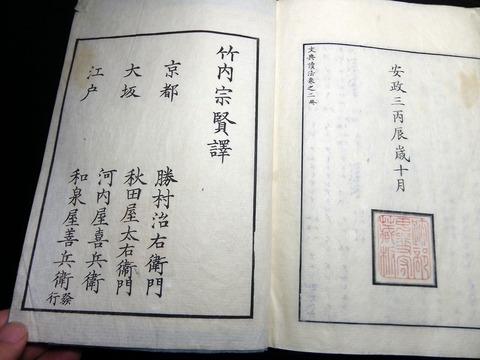 安政三丙辰歲十月
文典讀法
竹内宗賢譯
京都 勝村治右衛門
大坂 秋田屋太右衛門
河内屋喜兵衛
江戸 和泉屋善兵衛 發行